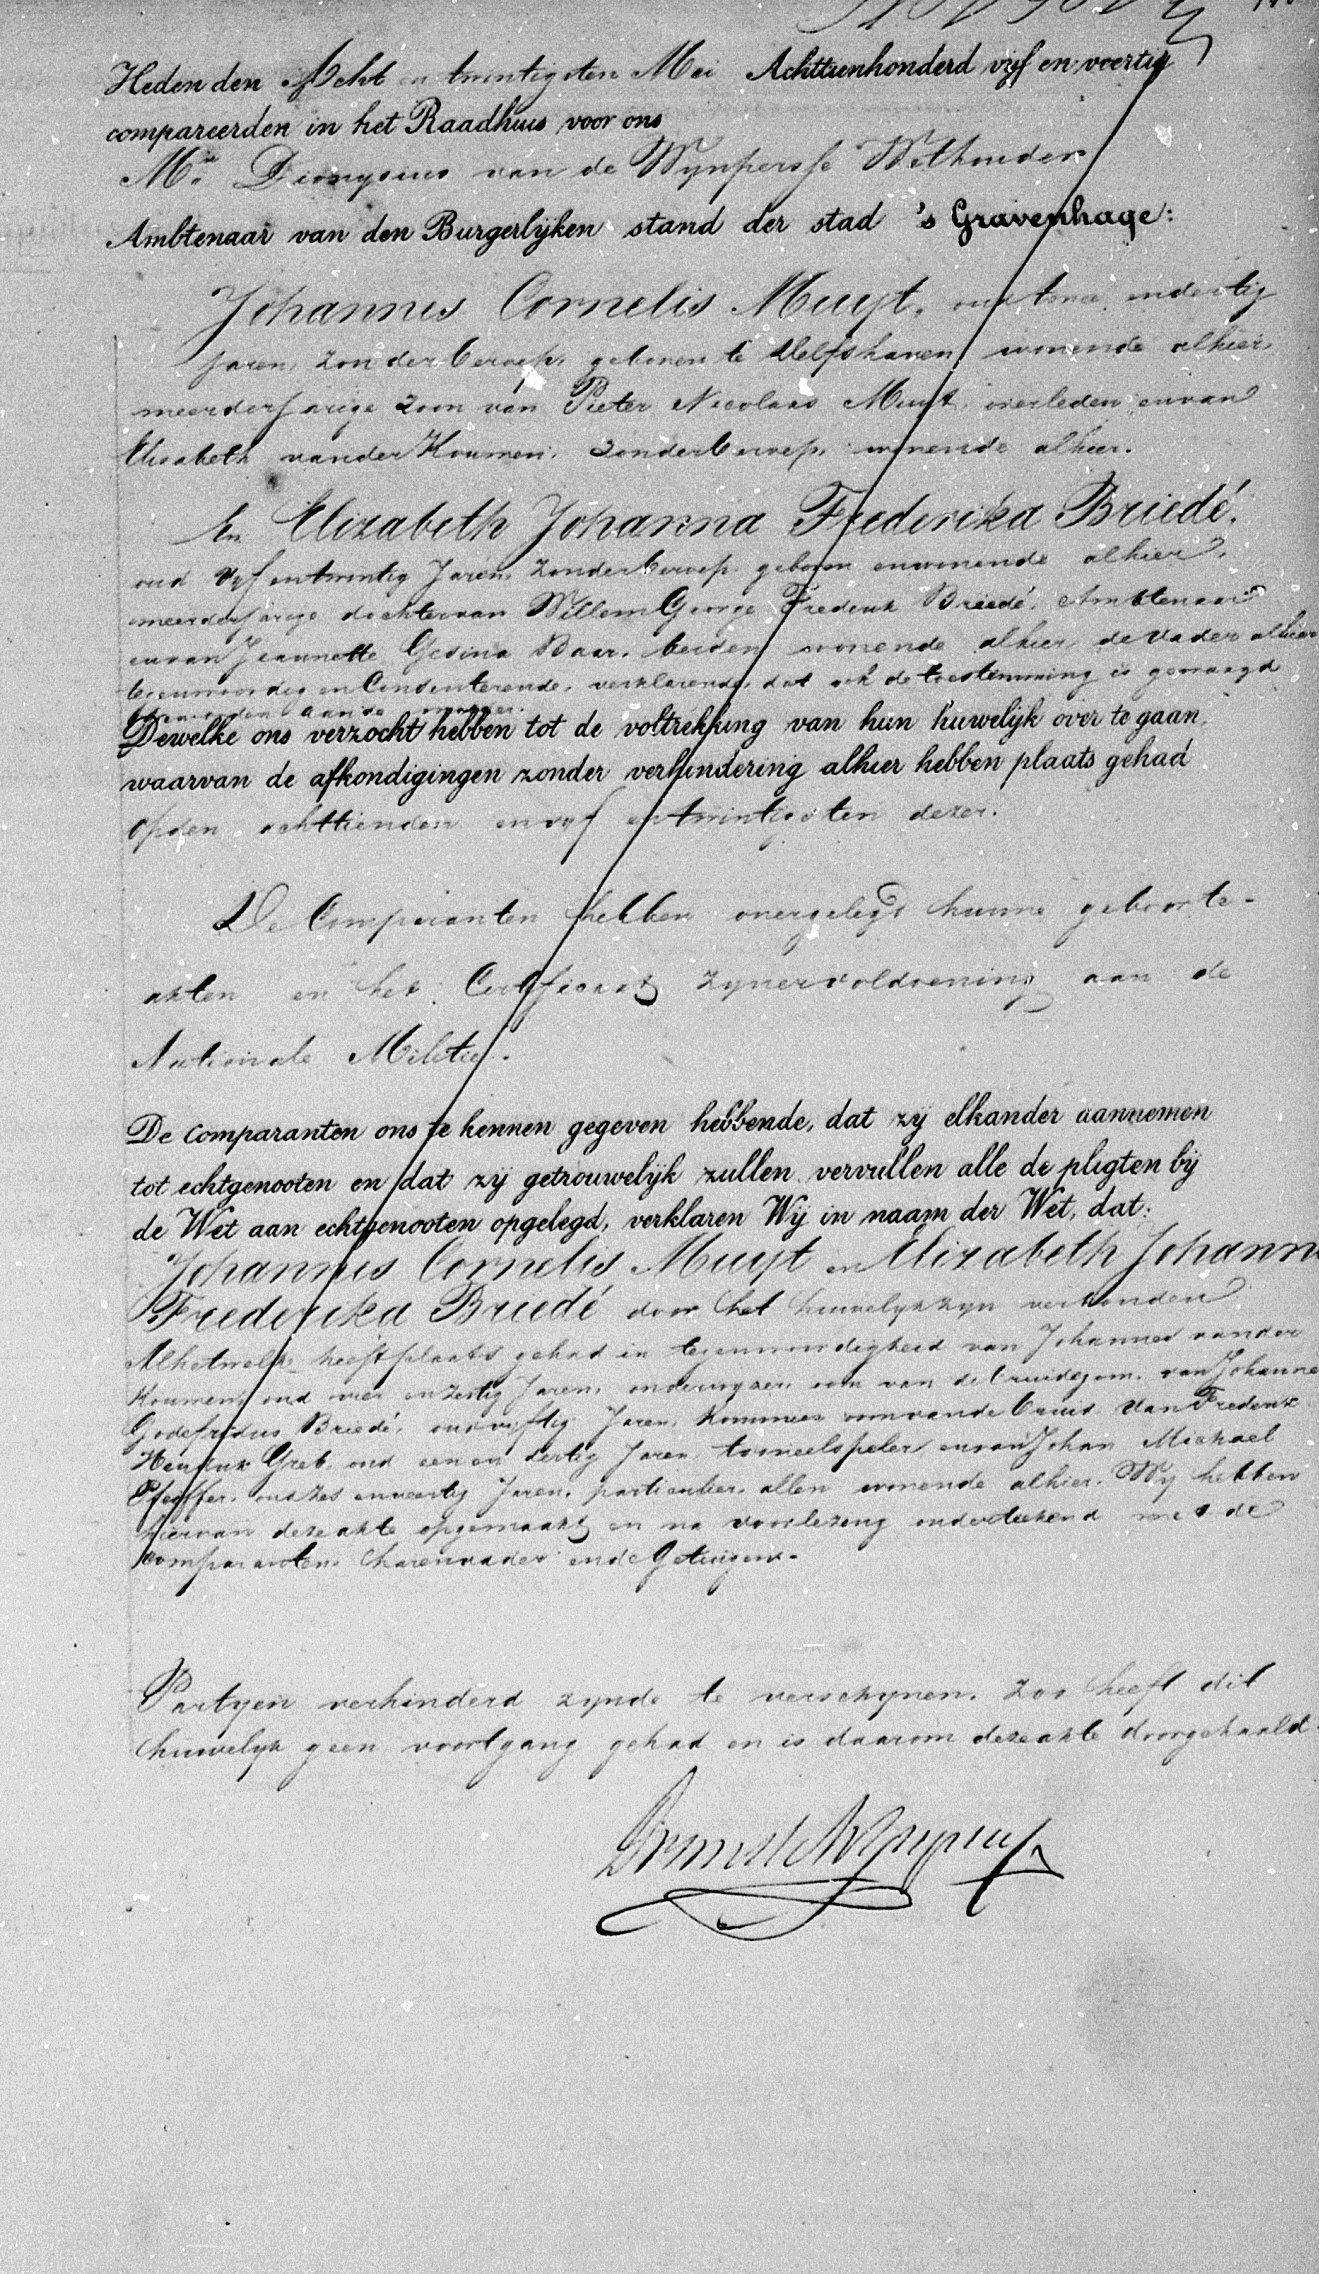 Heden den Acht en twintigsten Mei Achttienhonderd vijf en veertig
compareerden in het Raadhuis voor ons
Mr. Dionysius van de Wynpersse Wethouder
Ambtenaar van den Burgerlijken stand der stad 's Gravenhage:
Johannes Cornelis Muyt, oud en dertig
jaren, zonder beroep, geboren te Delfshaven, wonende alhier,
meerderjarige zoon van Pieter Nicolaas Muyt, overleden, en van
Elisabeth van der Koumen, zonder beroep, wonende alhier.
En Elizabeth Johanna Frederika Briedé,
oud vyf en twintig Jaren, zonder beroep, geboren en wonende alhier,
meerderjarige dochter van Willem George Frederik Briedé, Ambtenaar
en van Jeannette Gesina Baar, beiden wonende alhier, de Vader alhier
tegenwoordig en Consenterende, verklarende, dat ook de toestemming is gevraagd
aan de moeder.
Dewelke ons verzocht hebben tot de voltrekking van hun huwelijk over te gaan,
waarvan de afkondigingen zonder verhindering alhier hebben plaats gehad
op den achttienden en vyf en twintigsten dezer.
De Comparanten hebben overgelegd hunne geboorte-
akten en het Certificaat zyner voldoening aan de
Nationale Militie.
De comparanten ons te kennen gegeven hebbende, dat zy elkander aannemen
tot echtgenooten en dat zij getrouwelijk zullen vervullen alle de pligten bij
de Wet aan echtgenooten opgelegd, verklaren Wij in naam der Wet, dat:
Johannes Cornelis Muyt en Elizabeth Johanna
Frederika Briedé door het huwelyk zyn verbonden
Al hetwelk heeft plaats gehad in tegenwoordigheid van Johannes van der
Koumen, oud vier en zestig Jaren, onderwyzer, oom van de bruidegom, van Johannes
Godefridus Briedé, oud vyftig Jaren, kommies oom van de bruid, van Frederik
Hendrik Greb, oud een en dertig Jaren, tooneelspeler en van Johan Michael
Pfeiffer, oud zes en veertig Jaren, particulier, allen wonende alhier. Wy hebben
hiervan deze akte opgemaakt, en na voorlezing onderteekend met de
comparanten, haren vader en de Getuigen.
Partyen verhinderd zynde te verschynen, zoo heeft dit
huwelyk geen voortgang gehad en is daarom deze akte doorgehaald.